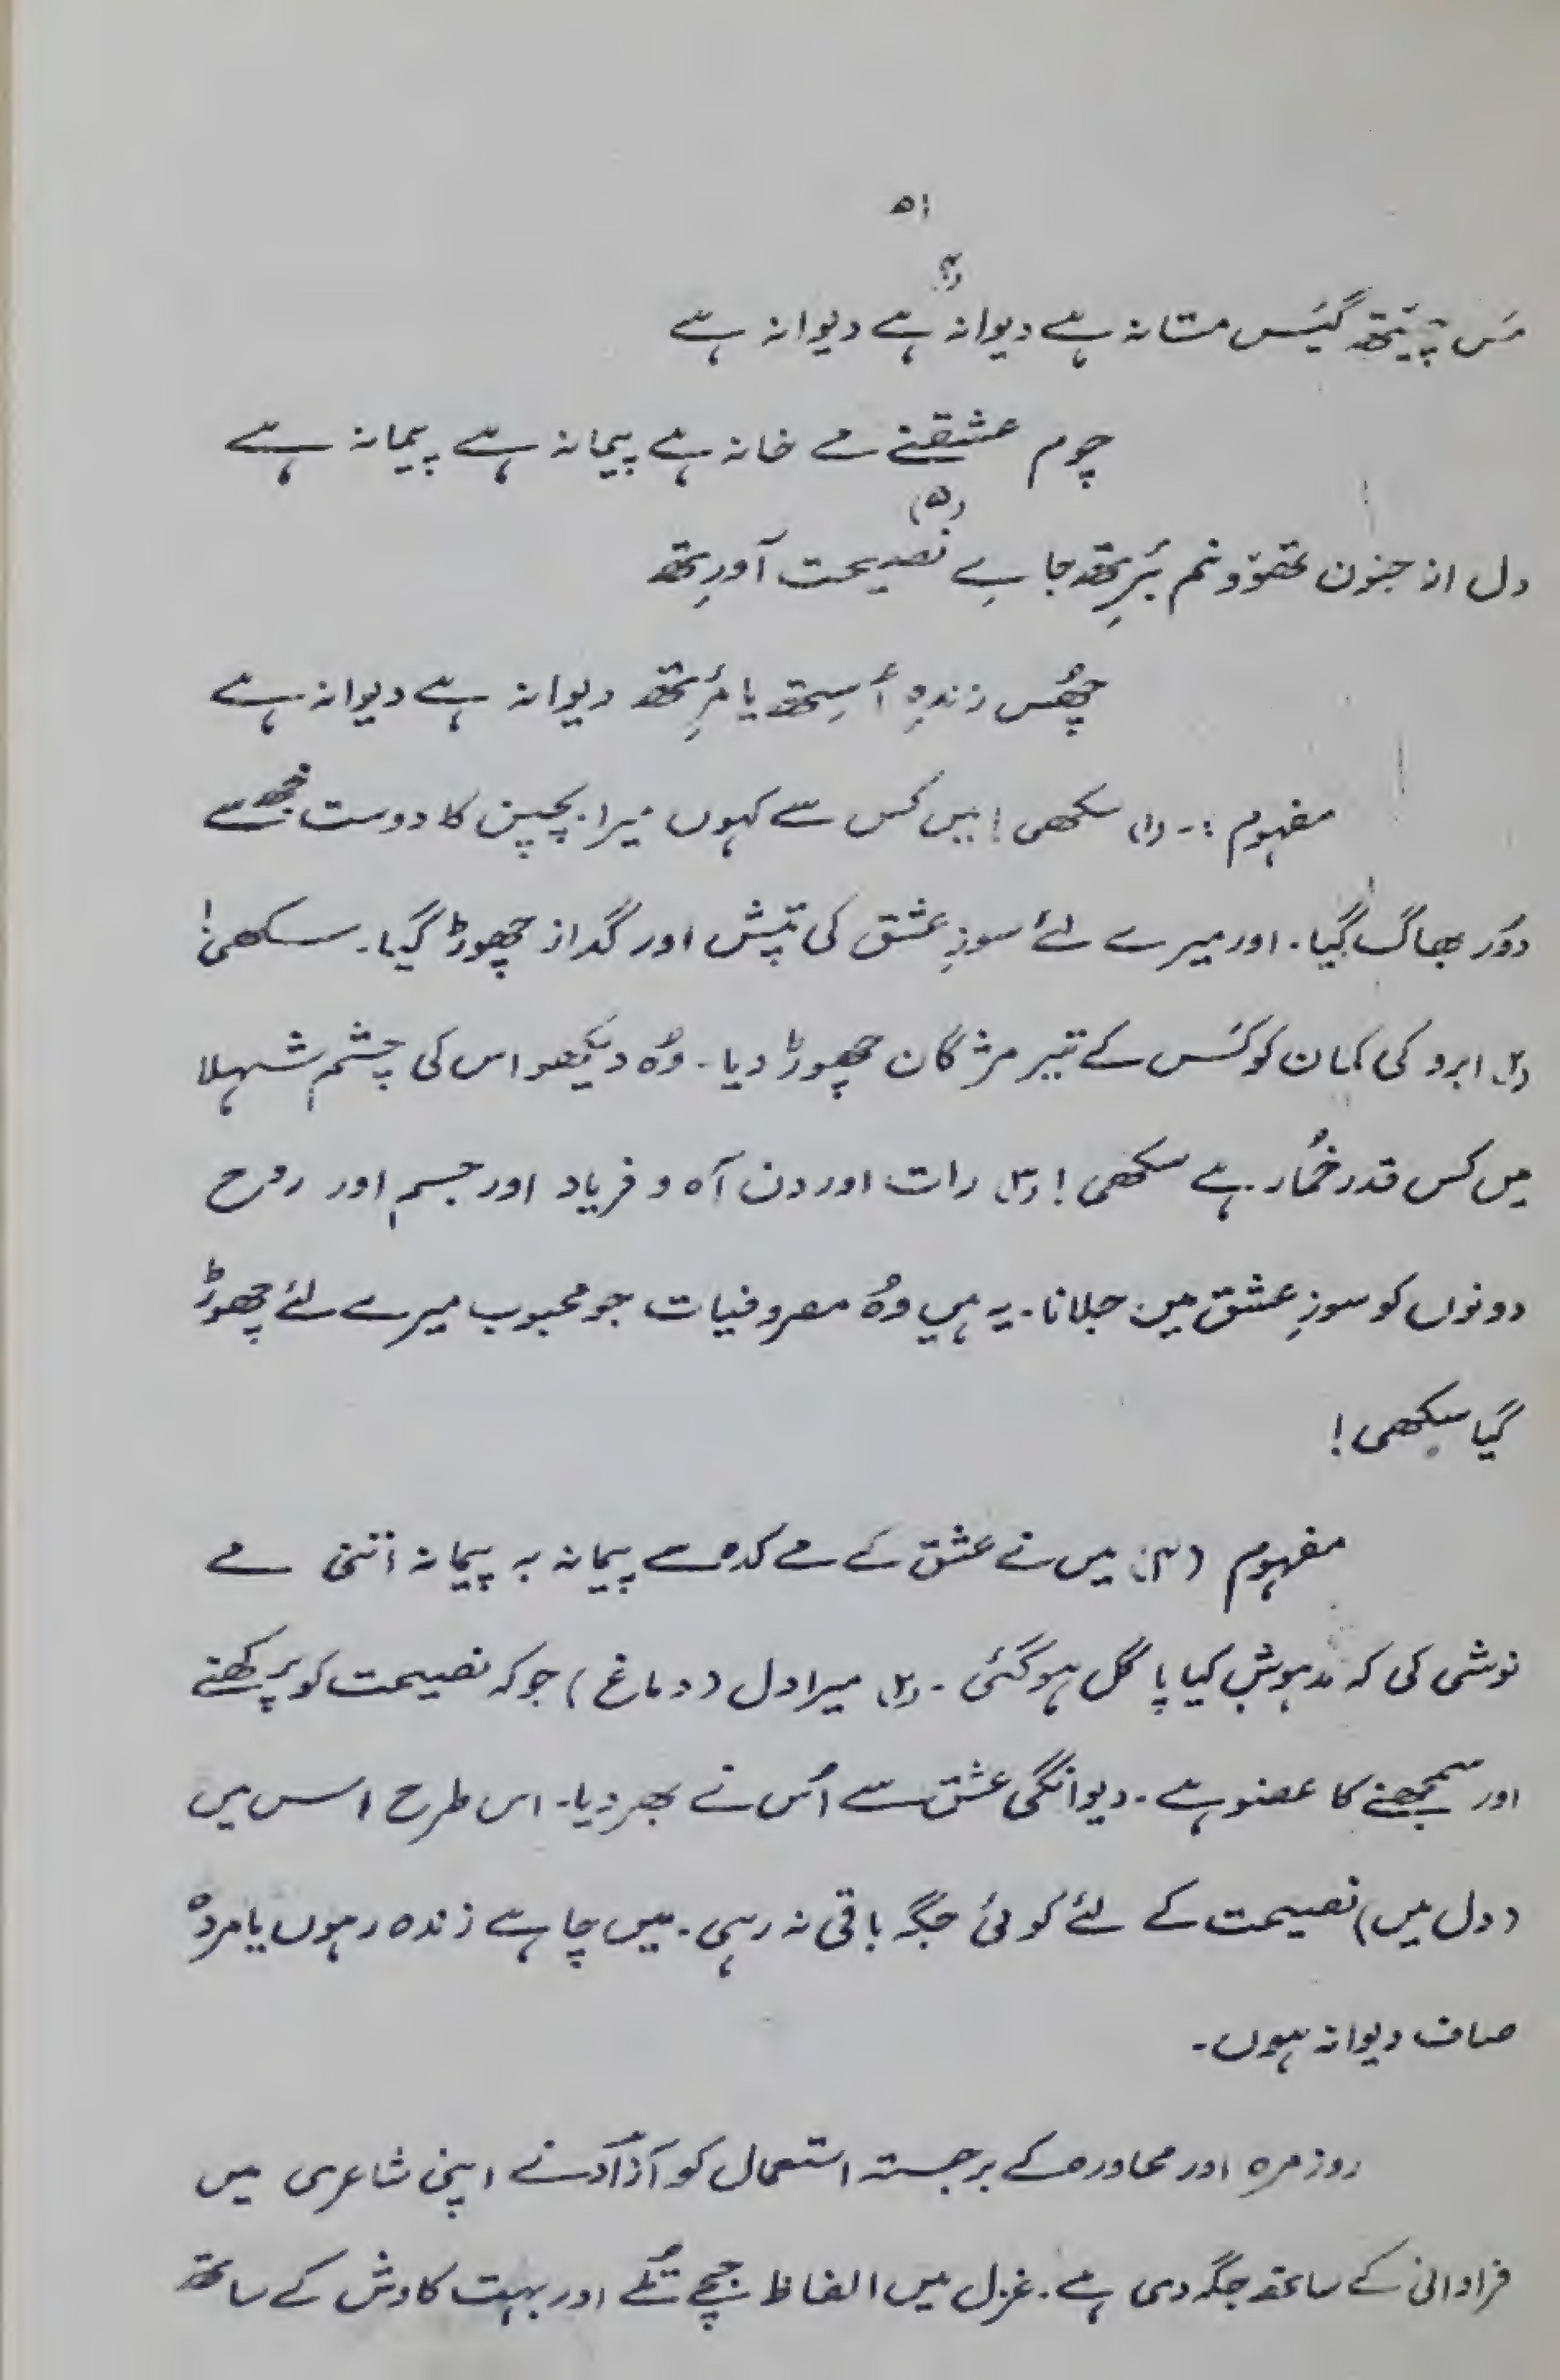 ۵۱
(۴)
مَس چیتھ گیَس مستانہ ہے دیوانہ ہے دیوانہ ہے
چوم عشقنے مے خانہ ہے پیمانہ ہے پیمانہ ہے
(۵)
دل از جنون تھوونم بَرِتھ جاے نصیحت آورِتھ
چھُس زندہِ أسِتھ یا مَرِتھ دیوانہ ہے دیوانہ ہے
مفہوم :۔ (۱) سکھی! میں کس سے کہوں میرا بچپن کا دوست مجھ سے
دوُر بھاگ گیا۔ اور میرے لئے سوزِ عشق کی تپش اور گداز چھوڑ گیا۔ سکھی!
(۲) ابرو کی کمان کو کَس کے تیر مژگان چھوڑ دیا۔ وُہ دیکھو اس کی چشم شہلا
میں کس قدر خُمار ہے سکھی! (۳) رات اور دن آہ و فریاد اور جسم اور روح
دونوں کو سوزِ عشق میں جلانا۔ یہ ہیں وُہ مصروفیات جو محبوب میرے لئے چھوڑ
گیا سکھی!
مفہوم (۴) میں نے عشق کے مے کدہ سے پیمانہ بہ پیمانہ اتنی مے
نوشی کی کہ مدہوش کیا پاگل ہو گئی ۔ (۲) میرا دل (دماغ) جو کہ نصیحت کو پرکھنے
اور سمجھنے کا عضو ہے ۔ دیوانگی عشق سے اُس نے بھر دیا۔ اس طرح اس میں
(دل میں) نصیحت کے لئے کوئی جگہ باقی نہ رہی۔ میں چاہے زندہ رہوں یا مردہ
صاف دیوانہ ہوں۔
روزمرہ اور محاورہ کے برجستہ استعمال کو آزاد نے اپنی شاعری میں
فراوانی کے ساتھ جگہ دی ہے۔ غزل میں الفاظ جچے تُلے اور بہت کاوش کے ساتھ